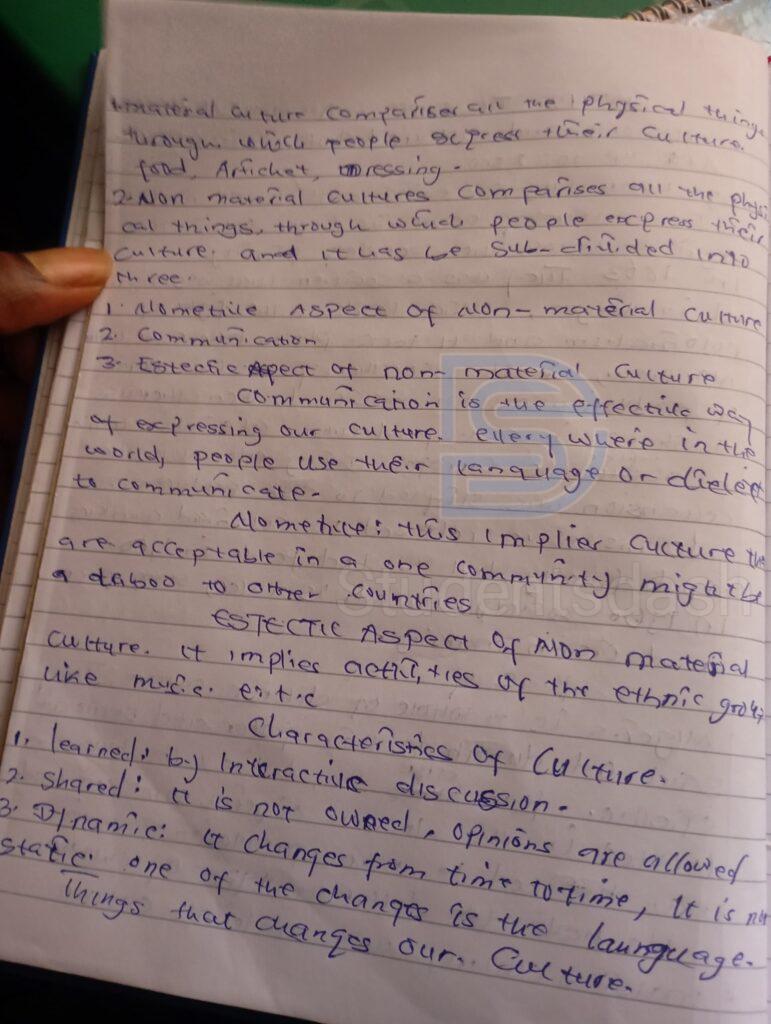 1. material culture compariser all the physical things
through. which people express their culture.
food, Artichet, Dressing.
2. Non material cultures comparises all the physi
cal things, through which people express their
culture. and it has be sub-divided into
three.
1. Nometive Aspect of Non-material culture
2. Communication
3. Estectic Aspect of non-material culture
Communication is the effective way
of expressing our culture. every where in the
world, people use their language or dielect
to communicate.
Nometive: this implier culture the
are acceptable in a one community might be
a taboo to other countries
ESTECTIC ASPECT Of Non material
Culture. it implies activities of the ethnic group
like music. e.t.c
Characteristics Of Culture.
1. learned: by Interactive discussion.
2. Shared: it is not owned, opinions are allowed
3. Dynamic: it changes from time to time, it is not
static. one of the changes is the launguage.
Things that changes our. Culture.
Studentsdash